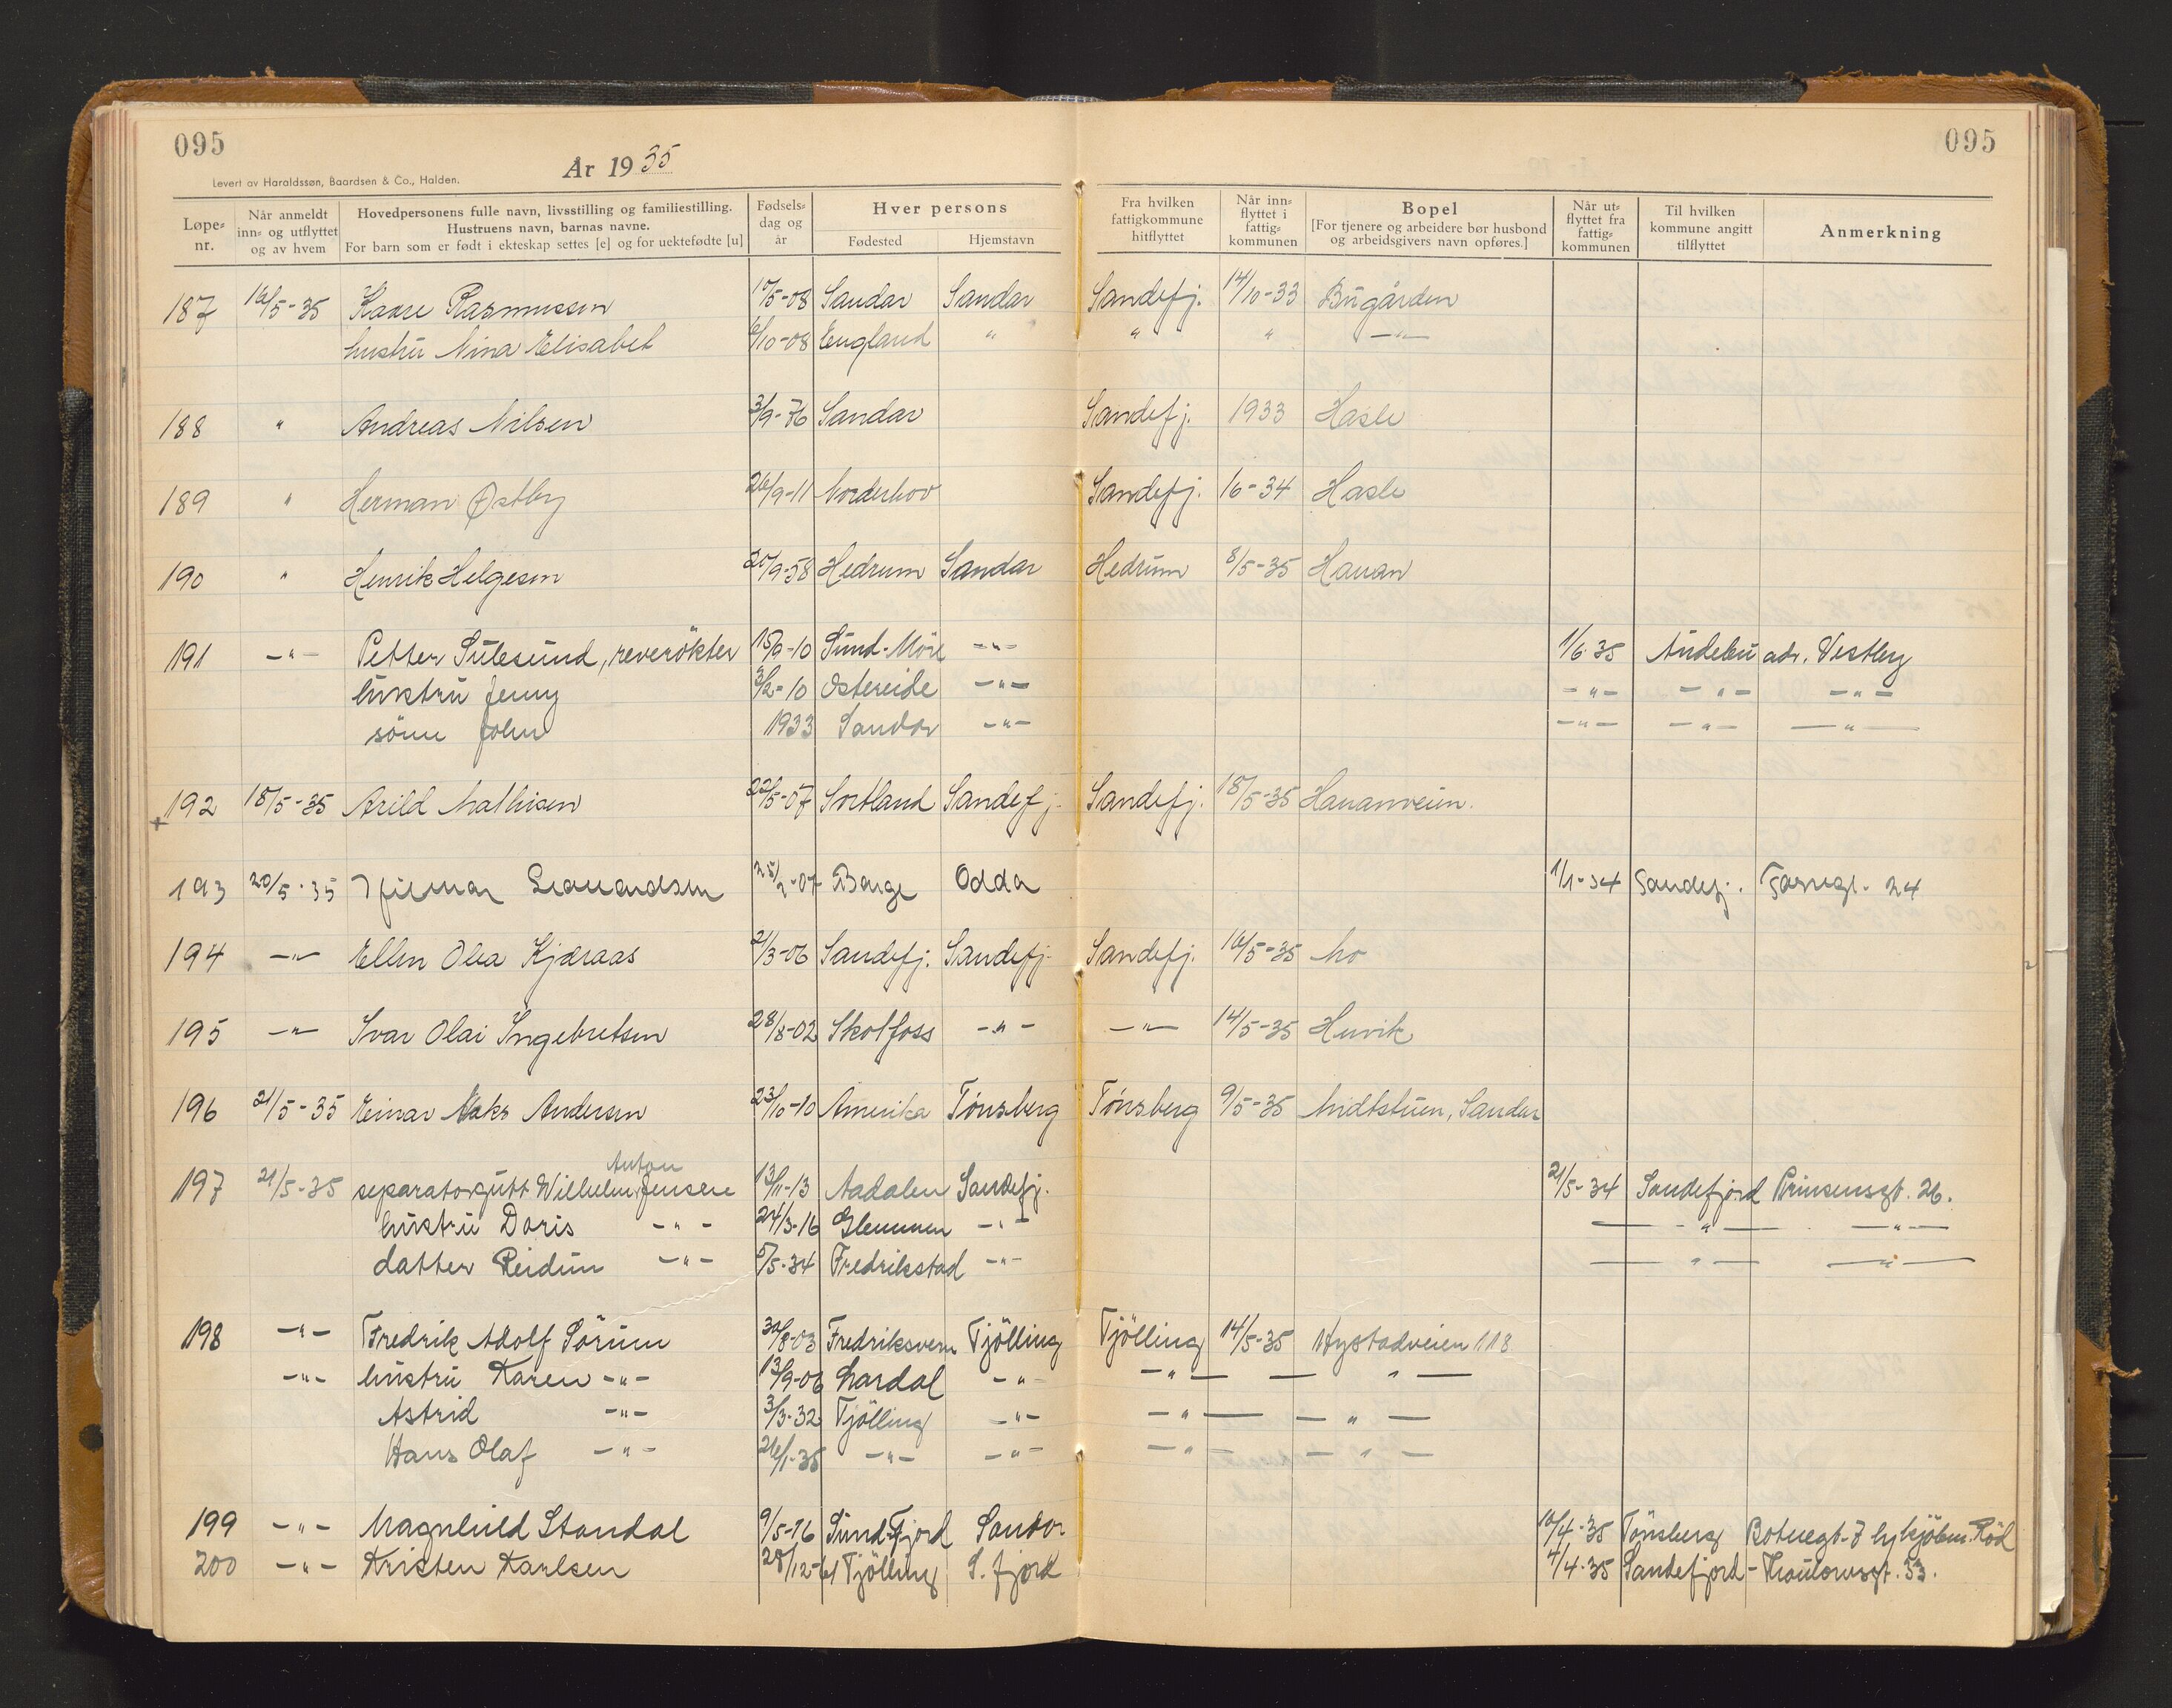 095
095
År 1935
Levert av Haraldssøn, Baardsen & Co., Halden.
Løpe-nr.
Når anmeldt inn- og utflyttet og av hvem
Hovedpersonens fulle navn, livsstilling og familiestilling.
Hustruens navn, barnas navne.
For barn som er født i ekteskap settes [e] og for uektefødte [u]
Fødsels-dag og år
Hver persons
Fødested
Hjemstavn
Fra hvilken fattigkommune hitflyttet
Når inn-flyttet i fattig-kommunen
Bopel
[For tjenere og arbeidere bør husbond og arbeidsgivers navn opføres.]
Når ut-flyttet fra fattig-kommunen
Til hvilken kommune angitt tilflyttet
Anmerkning
187 16/5-35 Kaare Rasmussen 17/5-08 Sandar Sandar Sandefj. 14/10-33 Bugården
hustru Nina Elisabet 6/10-08 England " " " -"-
188 " Andreas Nilsen 3/9-76 Sandar Sandefj. 1933 Hasle
189 " Herman Østby 26/9-11 Norderhov Sandefj. 16-34 Hasle
190 " Henrik Helgesen 20/9-58 Hedrum Sandar Hedrum 8/5-35 Hauan
191 -"- Petter Sulesund, reverökter 15/9-10 Sund-Möre -"- 1/6 35 Andebu adr. Vestby
hustru Jenny 3/2-10 Ostereide -"- -"- -"- -"-
sönn John 1933 Sandar -"- -"- -"- -"-
192 18/5-35 Arild Mathisen 22/5-07 Sortland Sandefj. Sandefj. 18/5-35 Hauanveien.
193 20/5-35 Hjilmar 25/2-07 Borge Odda 1/1-34 Sandefj. 24
194 -"- Ellen Olea Kjæraas 21/3-06 Sandefj. Sandefj. Sandefj. 16/5-35 Mo
195 -"- Ivar Olai Ingebretsen 28/8-02 Skotfoss -"- -"- 14/5-35 Huvik
196 21/5-35 Einar Maks Andersen 23/10-10 Amerika Tönsberg Tönsberg 9/5-35 Midtstuen, Sandar
Anton
197 21/5-35 separatorgutt Wilhelm Jensen 13/11-13 Aadalen Sandefj. 21/5-34 Sandefjord Prinsensgt. 26.
hustru Doris -"- 24/3-16 Glemmen -"- -"- -"-
datter Reidun -"- 5/5-34 Fredrikstad -"- -"- -"-
198 -"- Fredrik Adolf Sörum 30/8-03 Fredriksvern Tjölling Tjölling 14/5-35 Nystadveien 118
-"- hustru Karen -"- 13/9-06 Lardal -"- -"- -"-
Astrid -"- 3/3-32 Tjölling -"- -"- -"-
Hans Olaf -"- 26/1-35 -"- -"- -"- -"-
199 -"- Magnhild Standal 9/5-16 Sund-Fjord Sandar 10/4-35 Tönsberg
200 -"- Kristen Karlsen 28/12-61 Tjölling S. fjord 4/4-35 Sandefjord - Thaulowsgt. 33.